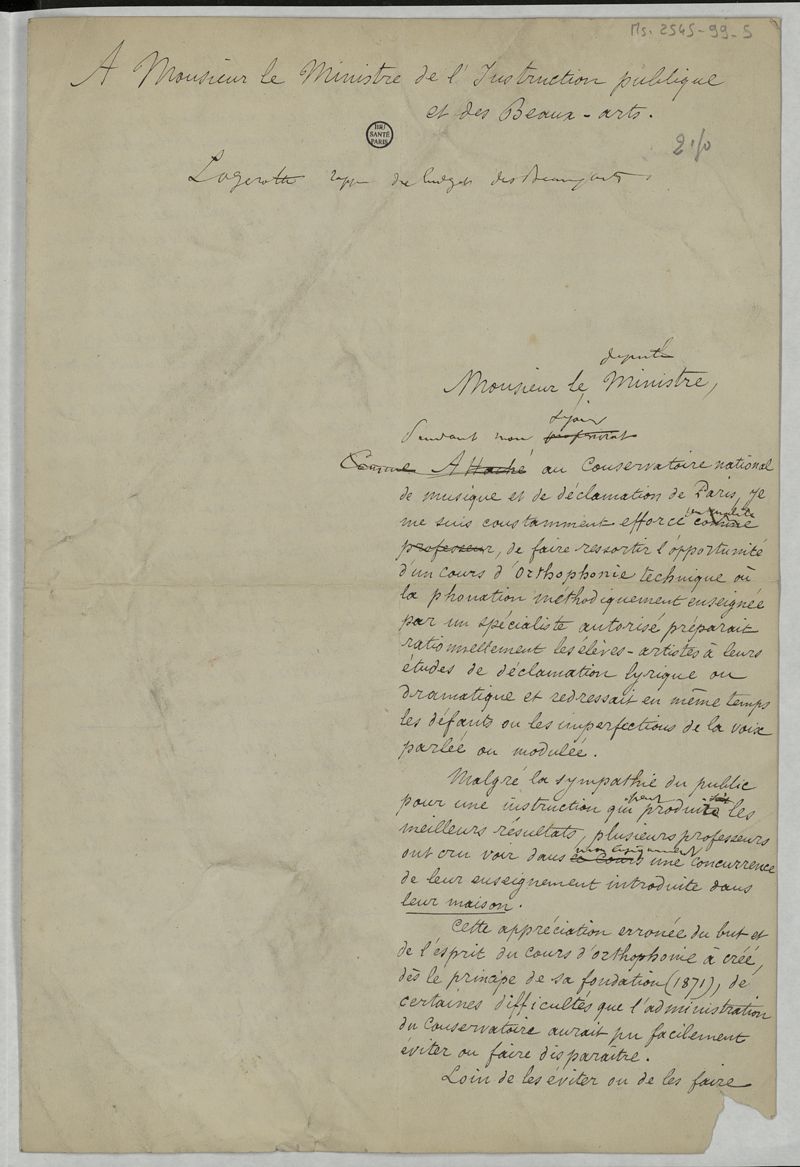 Ms. 2545-99-5
A Monsieur le Ministre de l'Instruction publique
et des Beaux-arts.
BIU
SANTÉ
PARIS
Lagerotte rapp du budget des Beaux arts
député
Monsieur le Ministre,
séjour
Pendant mon professorat
Comme Attaché au Conservatoire national
de musique et de déclamation de Paris, je
en qualité
me suis constamment efforcé comme
professeur, de faire ressortir l'opportunité
d'un cours d'Orthophonie technique où
la phonation méthodiquement enseignée
par un spécialiste autorisé préparait
rationnellement les élèves-artistes à leurs
études de déclamation lyrique ou
dramatique et redressait en même temps
les défauts ou les imperfections de la voix
parlée ou modulée.
Malgré la sympathie du public
peut
pour une instruction qui produire les
meilleurs résultats, plusieurs professeurs
mon enseignement
ont cru voir dans ce Cours une concurrence
de leur enseignement introduite dans
leur maison.
Cette appréciation erronée du but et
de l'esprit du cours d'orthophonie a créé,
dès le principe de sa fondation (1871), de
certaines difficultés que l'administration
du Conservatoire aurait pu facilement
éviter ou faire disparaître.
Loin de les éviter ou de les faire